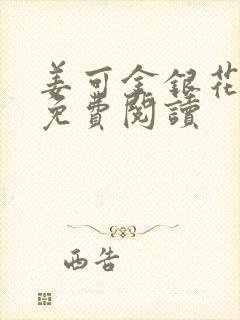 姜可金銀花
免費閱讀
西告